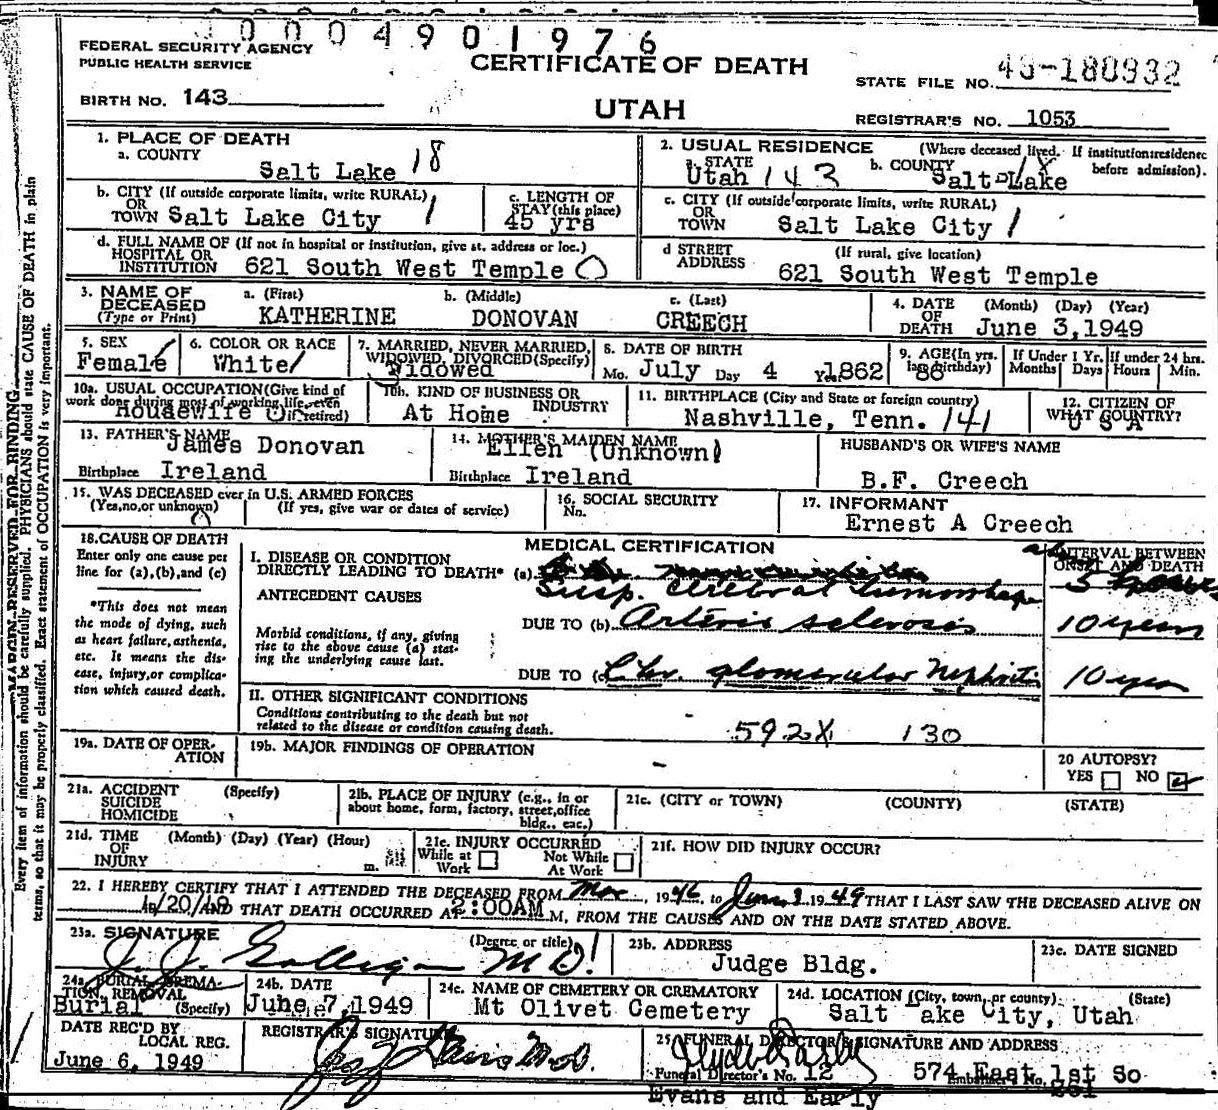 0004901976
FEDERAL SECURITY AGENCY
PUBLIC HEALTH SERVICE
CERTIFICATE OF DEATH
STATE FILE NO. 49-180932
BIRTH NO. 143
UTAH
REGISTRAR'S NO. 1053
1. PLACE OF DEATH
a. COUNTY
Salt Lake 18
2. USUAL RESIDENCE (Where deceased lived. If institution:residence before admission).
a. STATE b. COUNTY
Utah 143 Salt Lake 18
b. CITY (If outside corporate limits, write RURAL)
OR
TOWN Salt Lake City 1
c. LENGTH OF
STAY (this place)
45 yrs
c. CITY (If outside corporate limits, write RURAL)
OR
TOWN Salt Lake City 1
d. FULL NAME OF (If not in hospital or institution, give st. address or loc.)
HOSPITAL OR
INSTITUTION 621 South West Temple
d STREET
ADDRESS (If rural, give location)
621 South West Temple
3. NAME OF
DECEASED
(Type or Print)
a. (First) b. (Middle) c. (Last)
KATHERINE DONOVAN CREECH
4. DATE
OF
DEATH
(Month) (Day) (Year)
June 3,1949
5. SEX
Female
6. COLOR OR RACE
White
7. MARRIED, NEVER MARRIED,
WIDOWED, DIVORCED(Specify)
Widowed
8. DATE OF BIRTH
Mo. July Day 4 Yr. 1862
9. AGE(In yrs.
last birthday)
86
If Under 1 Yr.
Months Days
If under 24 hrs.
Hours Min.
10a. USUAL OCCUPATION(Give kind of
work done during most of working life, even
if retired)
Housewife
10b. KIND OF BUSINESS OR
INDUSTRY
At Home
11. BIRTHPLACE (City and State or foreign country)
Nashville, Tenn. 141
12. CITIZEN OF
WHAT COUNTRY?
U S A
13. FATHER'S NAME
James Donovan
Birthplace Ireland
14. MOTHER'S MAIDEN NAME
Ellen (Unknown)
Birthplace Ireland
HUSBAND'S OR WIFE'S NAME
B.F. Creech
15. WAS DECEASED ever in U.S. ARMED FORCES
(Yes,no,or unknown) (If yes, give war or dates of service)
16. SOCIAL SECURITY
No.
17. INFORMANT
Ernest A Creech
18. CAUSE OF DEATH
Enter only one cause per
line for (a),(b),and (c)
*This does not mean
the mode of dying, such
as heart failure, asthenia,
etc. It means the dis-
ease, injury,or complica-
tion which caused death.
MEDICAL CERTIFICATION
INTERVAL BETWEEN
ONSET AND DEATH
I. DISEASE OR CONDITION
DIRECTLY LEADING TO DEATH* (a)
Susp. Cerebral hemorrhage
5
ANTECEDENT CAUSES
Morbid conditions, if any, giving
rise to the above cause (a) stat-
ing the underlying cause last.
DUE TO (b) Arterio sclerosis 10 years
DUE TO (c) Chr. glomerular Nephritis 10 years
II. OTHER SIGNIFICANT CONDITIONS
Conditions contributing to the death but not
related to the disease or condition causing death.
592X 130
19a. DATE OF OPER-
ATION
19b. MAJOR FINDINGS OF OPERATION
20 AUTOPSY?
YES NO
21a. ACCIDENT
SUICIDE
HOMICIDE
(Specify)
21b. PLACE OF INJURY (e.g., in or
about home, form, factory, street,office
bldg., eac.)
21c. (CITY or TOWN) (COUNTY) (STATE)
21d. TIME
OF
INJURY
(Month) (Day) (Year) (Hour)
m.
21e. INJURY OCCURRED
While at
Work
Not While
At Work
21f. HOW DID INJURY OCCUR?
22. I HEREBY CERTIFY THAT I ATTENDED THE DECEASED FROM , 1946, to June 3 1949 THAT I LAST SAW THE DECEASED ALIVE ON
AND THAT DEATH OCCURRED AT 2:00AM M, FROM THE CAUSES AND ON THE DATE STATED ABOVE.
23a. SIGNATURE
(Degree or title)
J. J. Galligan M D
23b. ADDRESS
Judge Bldg.
23c. DATE SIGNED
24a. BURIAL, CREMA-
TION, REMOVAL
(Specify)
Burial
24b. DATE
June 7, 1949
24c. NAME OF CEMETERY OR CREMATORY
Mt Olivet Cemetery
24d. LOCATION (City, town, or county). (State)
Salt ake City, Utah
DATE REC'D BY
LOCAL REG.
June 6, 1949
REGISTRAR'S SIGNATURE
25. FUNERAL DIRECTOR'S SIGNATURE AND ADDRESS
574 East 1st So
Funeral Director's No. 12 Embalmer's No.
Evans and Early
MARGIN RESERVED FOR BINDING
Every item of information should be carefully supplied. PHYSICIANS should state CAUSE OF DEATH in plain
terms, so that it may be properly classified. Exact statement of OCCUPATION is very important.